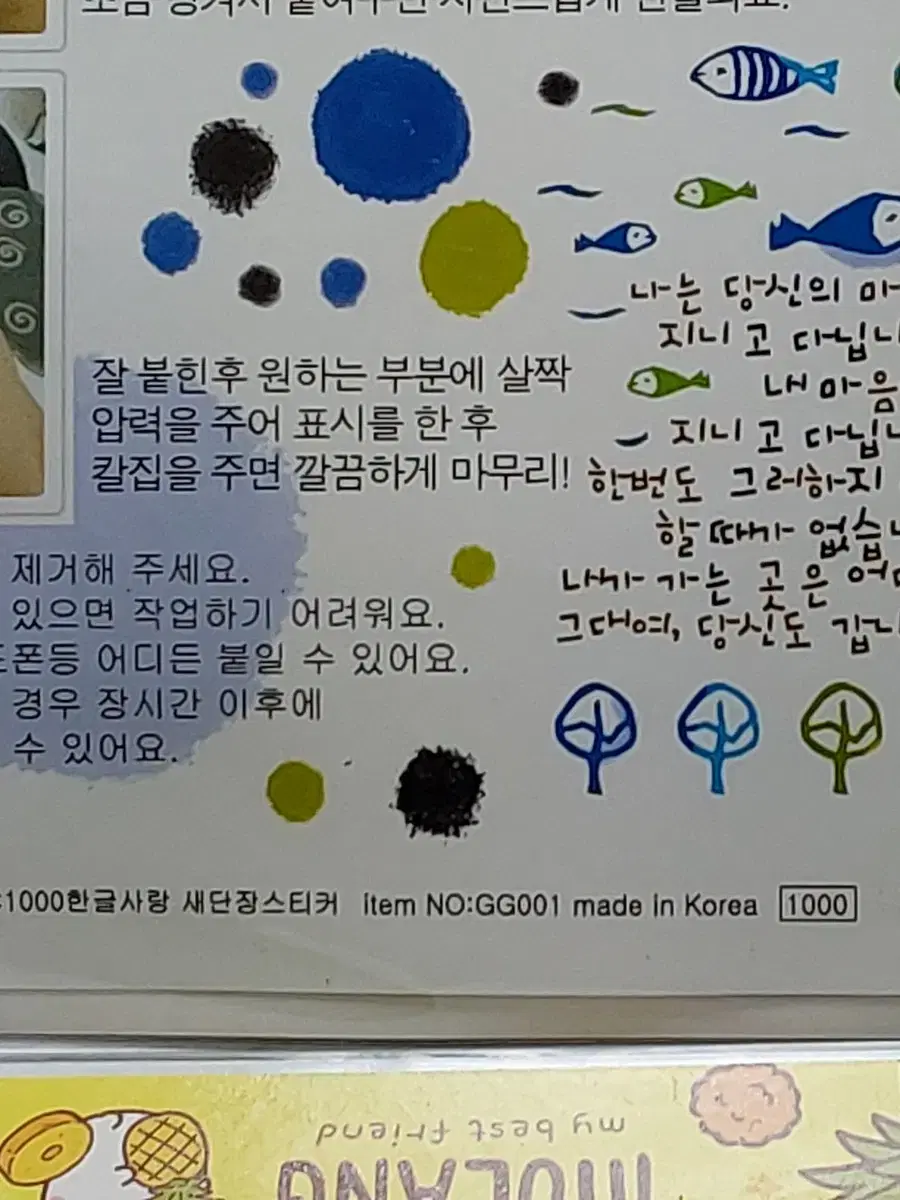 잘 붙힌후 원하는 부분에 살짝
압력을 주어 표시를 한 후
칼집을 주면 깔끔하게 마무리!
제거해 주세요.
있으면 작업하기 어려워요.
폰등 어디든 붙일 수 있어요.
경우 장시간 이후에
수 있어요.
나는 당신의
지니고 다닙니
내 마음
지니고 다닙니
한번도 그러하지
할 때가 없습
내가 가는 곳은
그대여, 당신도 갑니
1000한글사랑 새단장스티커 item NO:GG001 made in Korea 1000
my best friend
MOLANG